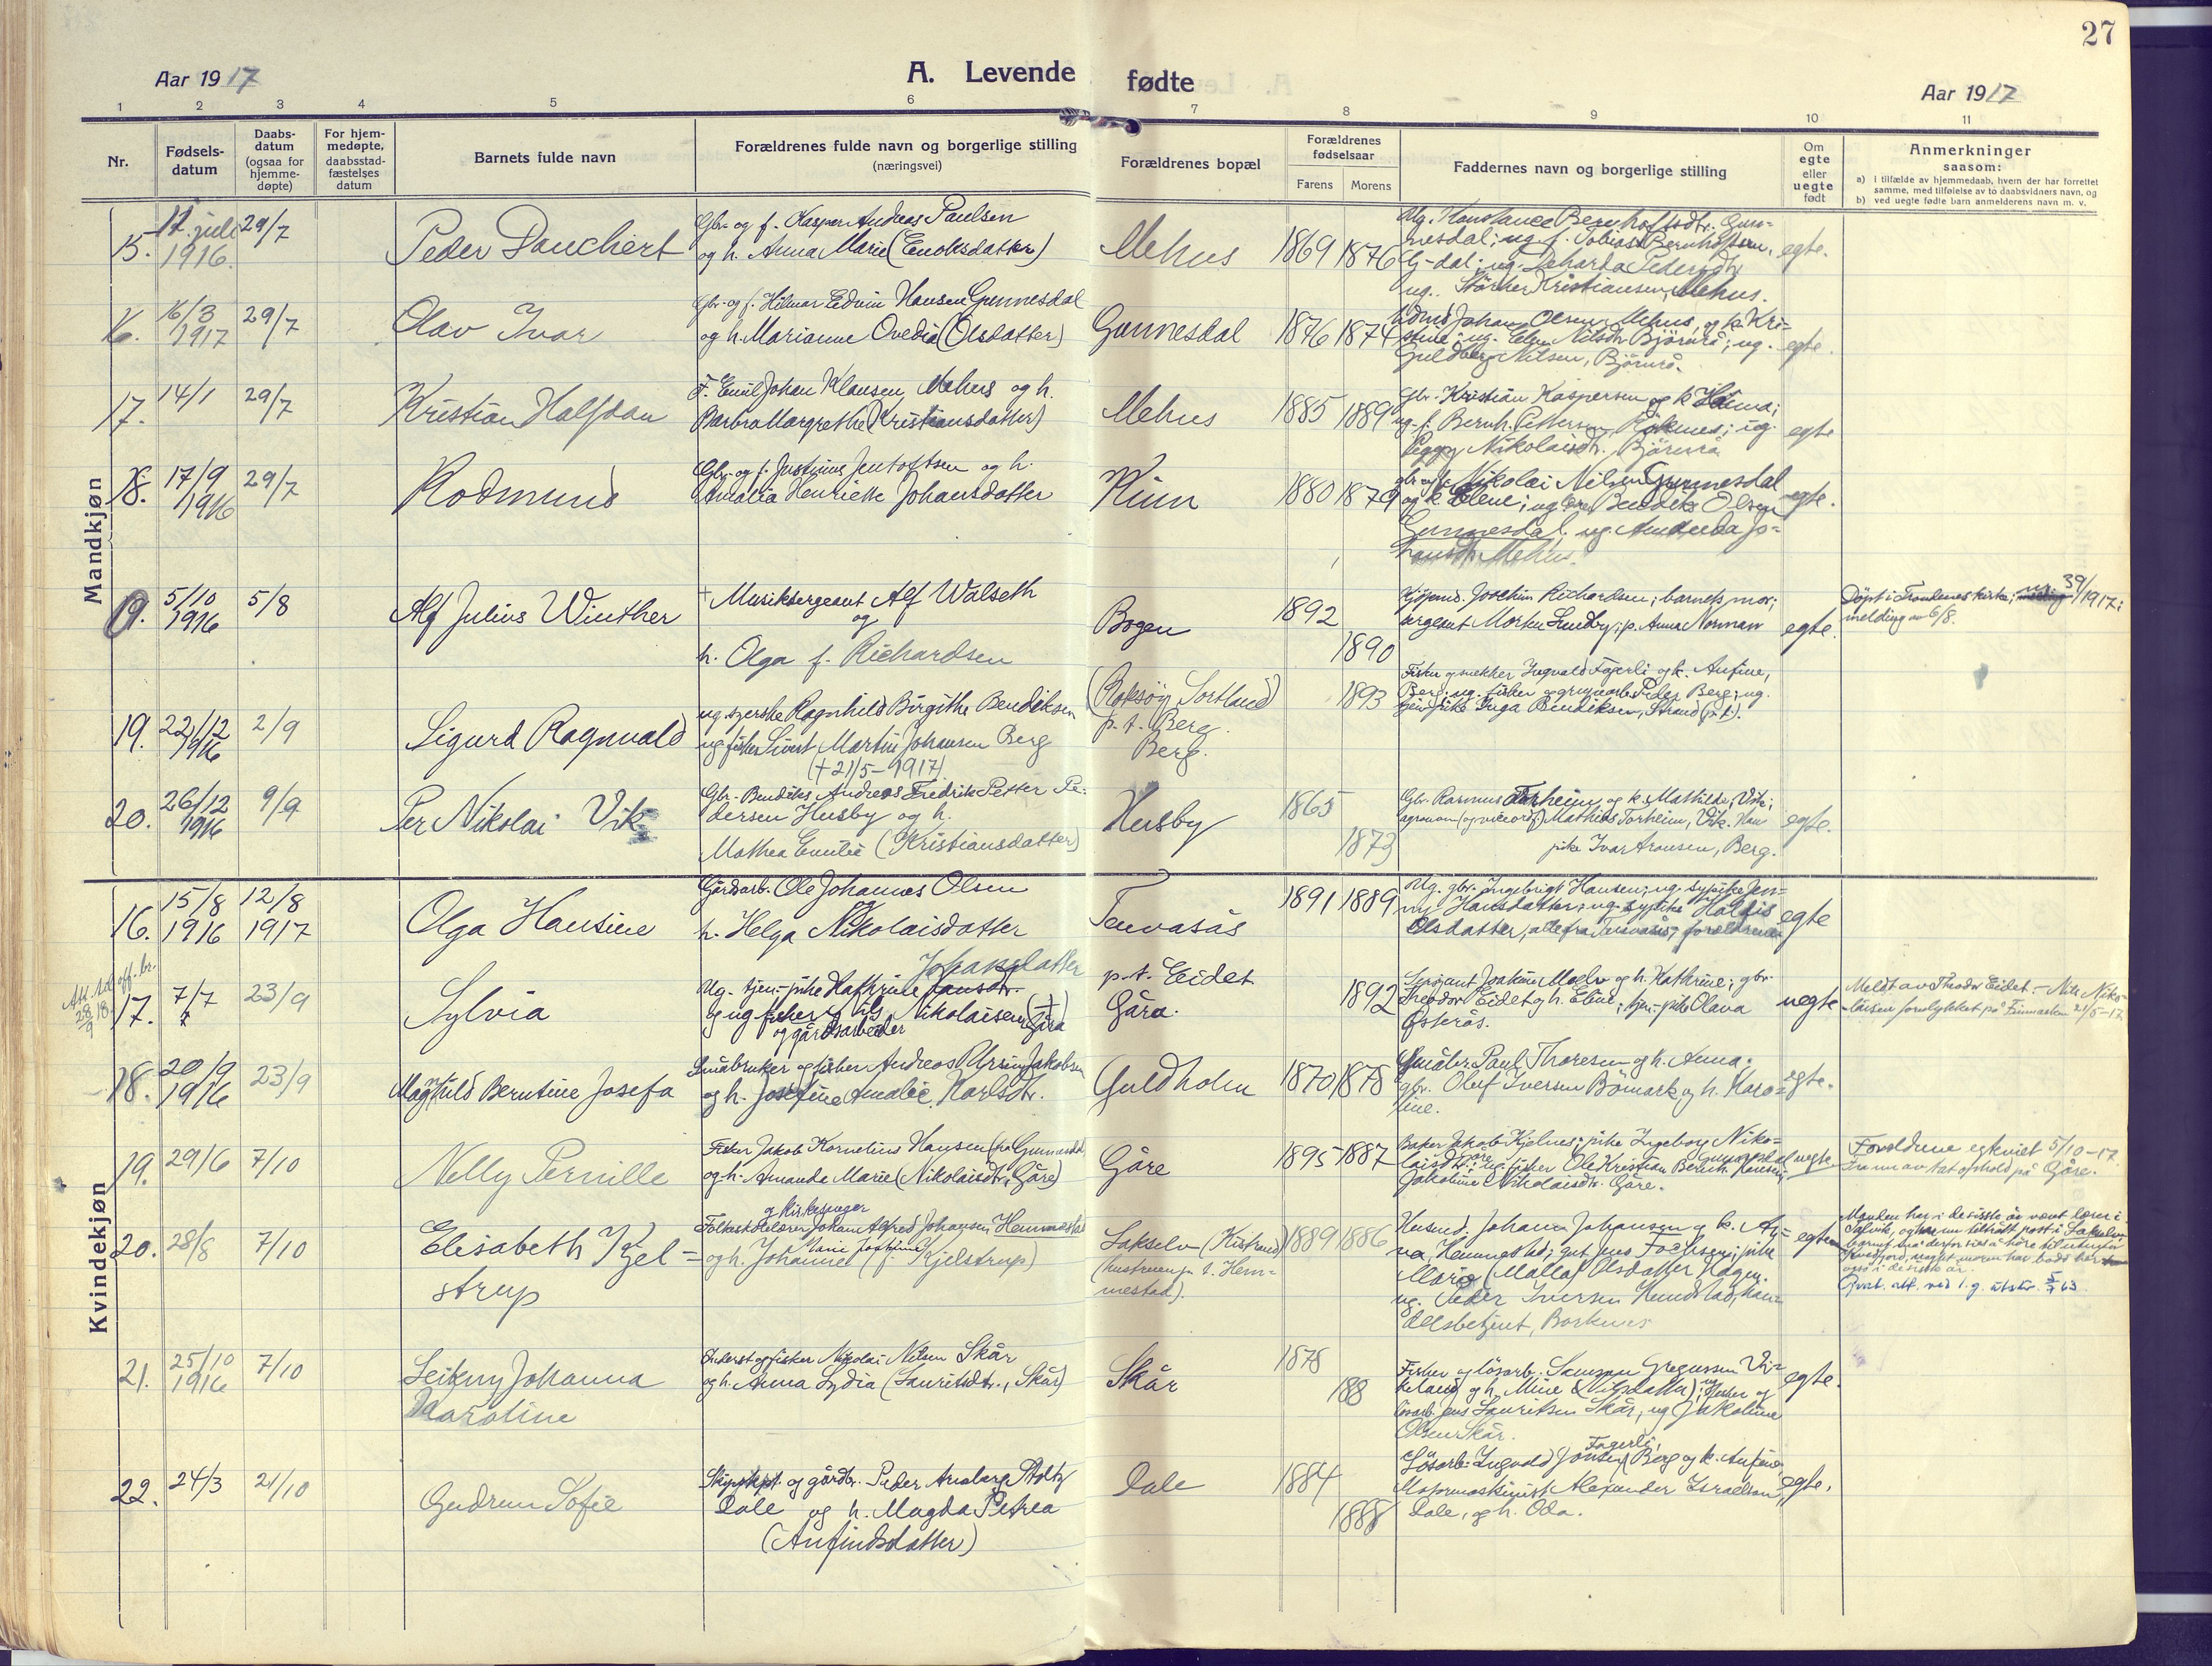 27
Aar 1917
A. Levende fødte
Aar 1917
1 2 3 4 5 6 7 8 9 10 11
Nr.
Fødsels-
datum
Daabs-
datum
(ogsaa for
hjemme-
døpte)
For hjem-
medøpte,
daabsstad-
fæstelses
datum
Barnets fulde navn
Forældrenes fulde navn og borgerlige stilling
(næringsvei)
Forældrenes bopæl
Forældrenes
fødselsaar
Farens Morens
Faddernes navn og borgerlige stilling
Om
egte
eller
uegte
født
Anmerkninger
saasom:
a) i tilfælde av hjemmedaab, hvem der har forrettet
samme, med tilføielse av to daabsvidners navn, og
b) ved uegte fødte barn anmelderens navn m. v.
Mandkjøn
15. juli 1916. 29/7
Peder Danchert
Gbr- og f. Kasper Andreas Paulsen
og h. Anna Marie (Enoksdatter)
Mehus
1869 1876
Ug. Konstance Bernhoftsdtr. Gun-
nesdal; ug. f. Tobias Bernhoftsen,
G-dal; ug. Pedersdtr
ug. Stärker Kristiansen, Mehus.
egte.
16. 16/3 1917 29/7
Olav Ivar
Gbr- og f. Hilmar Edvin Hansen Gunnesdal
og h. Marianne Ovedia (Olsdatter)
Gunnesdal
1876 1874
Johan Olsen Mehus, og k. Kri-
stine; ug. Nilsdtr Björnrå; ug.
Guldberg Nilsen, Björnrå.
egte.
17. 14/1 29/7
Kristian Halfdan
F. Emil Johan Klausen, Mehus og h.
Barbra Margrethe (Kristiansdatter)
Mehus
1885 1889
Gbr. Kristian Kaspersen og k
ug. f. Bernh. Pettersen, Röknes; ug.
Peggy Nikolaisdtr., Björnrå
egte
18. 17/9 1916 29/7
Rodmund
Gbr- og f. Justinus Jentoftsen og h.
Amalia Henriette Johansdatter
Kinn
1880 1879
Nikolai Nilsen Gunnesdal
og k. Elene; ug. Bendiks Olsen
Gunnesdal; ug. Jo-
hansdtr. Mehus.
egte.
19. 5/10 1916 5/8
Alf Julius Winther
+ Musiksergeant Alf Walseth
og
h. Olga f. Richardsen
Bogen
1892
1890
Kjøpmd. Joachim Richardsen; barnets mor;
sergeant Morten Lundby; p. Anna Norman
egte.
Døpt i Trondenes kirke; nr. 39/1917;
melding av 6/8.
19. 22/12 1916 2/9
Sigurd Ragnvald
ug. syerske Ragnhild Birgithe Bendiksen
ug fisker Sivert Martin Johansen Berg
(+ 21/5-1917)
(Roksøy, Sortland)
p. t. Berg.
Berg.
1893
Fisker og snekker Ingvald Fagerli og k. Anfine,
Berg; ug. fisker og Peder Berg; ug.
pike Inga Bendiksen, Strand (p. t.).
20. 26/12 1916 9/9
Per Nikolai Vik
Gbr- Bendiks Andreas Fredrik Petter Pe-
dersen Husby og h.
Mathea Emilie (Kristiansdatter)
Husby
1865
1873
Gbr. Rasmus Torheim og k. Mathilde, Vik;
agronom (og viceordf.) Mathias Torheim, Vik.
pike Ivar Aronsen, Berg.
egte.
Kvindekjøn
16. 15/8 1916 12/8 1917
Olga Hansine
Gårdsarb. Ole Johannes Olsen
h. Helga Nikolaisdatter
Tenvasås
1891 1889
Ug. gbr. Ingebrigt Hansen; ug. sypike Jen-
ny Hansdatter; ug. sypike Haldis
Olsdatter, alle fra Tenvasås; foreldrene
egte
Att. til off. br.
28/9 18.
17. 7/7 23/9
Sylvia
Johansdatter
Ug. tjen-pike Kathrine
og ug fisker Nils Nikolaisen (+)
og gårdsarbeider Gåra
p. t. Eidet
Gåra.
1892
Sersjant Joakim Moelv og h. Kathrine; gbr.
Theodor Eidet og h. Eline; tjen.-pike Olava
Østerås.
uegte
Meldt av Theodor Eidet. - Nils Niko-
laisen forulykket på Finmarken 21/5-17
18. 20/9 1916 23/9
Magnhild Berntine Josefa
Småbruker og fisker Andreas Jakobsen
og h. Josefine Amalie Karlsdtr.
Guldholm
1870 1878
Småbr. Paul Thoresen og h. Anna;
gbr. Oluf Iversen Bömark og h. Karo-
line.
egte.
19. 29/6 7/10
Nelly Pernille
Fisker Jakob Kornelius Hansen (fra Gunnesdal)
og h. Amanda Marie (Nikolaisdtr., Gåre)
Gåre
1895 1887
Baker Jakob Kjelnes; pike Ingeborg Niko-
laisdtr. Gåre; ug. fisker Ole Kristian Bernh. Jensen;
Jakobine Nikolaisdtr. Gåre.
uegte
Foreldrene egteviet 5/10-17.
på Gåre.
20. 28/8 7/10
Elisabeth Kjel-
strup
og kirkesanger
Folkeskolelærer Johan Alfred Johansen Hemmestad
og h. Johanne Marie (f. Kjelstrup)
Lakselv (Kistrand)
(hustruen p. t. Hem-
mestad).
1889 1886
Husmd. Johan Johansen og k.
Hemmestad; gut Jens pike
Marie (Malla) Olsdatter Hagen.
ug. Peder Iversen Hundstad, han-
delsbetjent, Borknes
egte
Manden har i de siste år vært lærer i
Talvik, og har nu tiltrådt post i Lakselv
barnet må derfor sies å høre til utenfor
Kvedfjord, uagtet moren har bodd her
også i de siste år.
21. 25/10 1916 7/10
Leikny Johanna
Karoline
Inderst og fisker Nikolai Nilsen Skår
og h. Anna Lydia (Lauritsdtr., Skår)
Skår
1878
188
Fisker og løsarb. Samson Gregussen Vi-
keland og h. Mine (Nilsdatter); ug fisker og
løsarb. Jens Lauritsen Skår; ug Jakobine
Olsen Skår.
egte.
22. 24/3 21/10
Gudrun Sofie
Skipskpt. og gårdbr. Peder Amberg Stoltz
Dale og h. Magda Petrea
(Anfindsdatter)
Dale
1884
1888
Fagerli,
Løsarb. Ingvald Jonsen Berg og k. Anfine
Motormaskinist Alexander Israelsen,
Dale, og h. Oda.
egte.